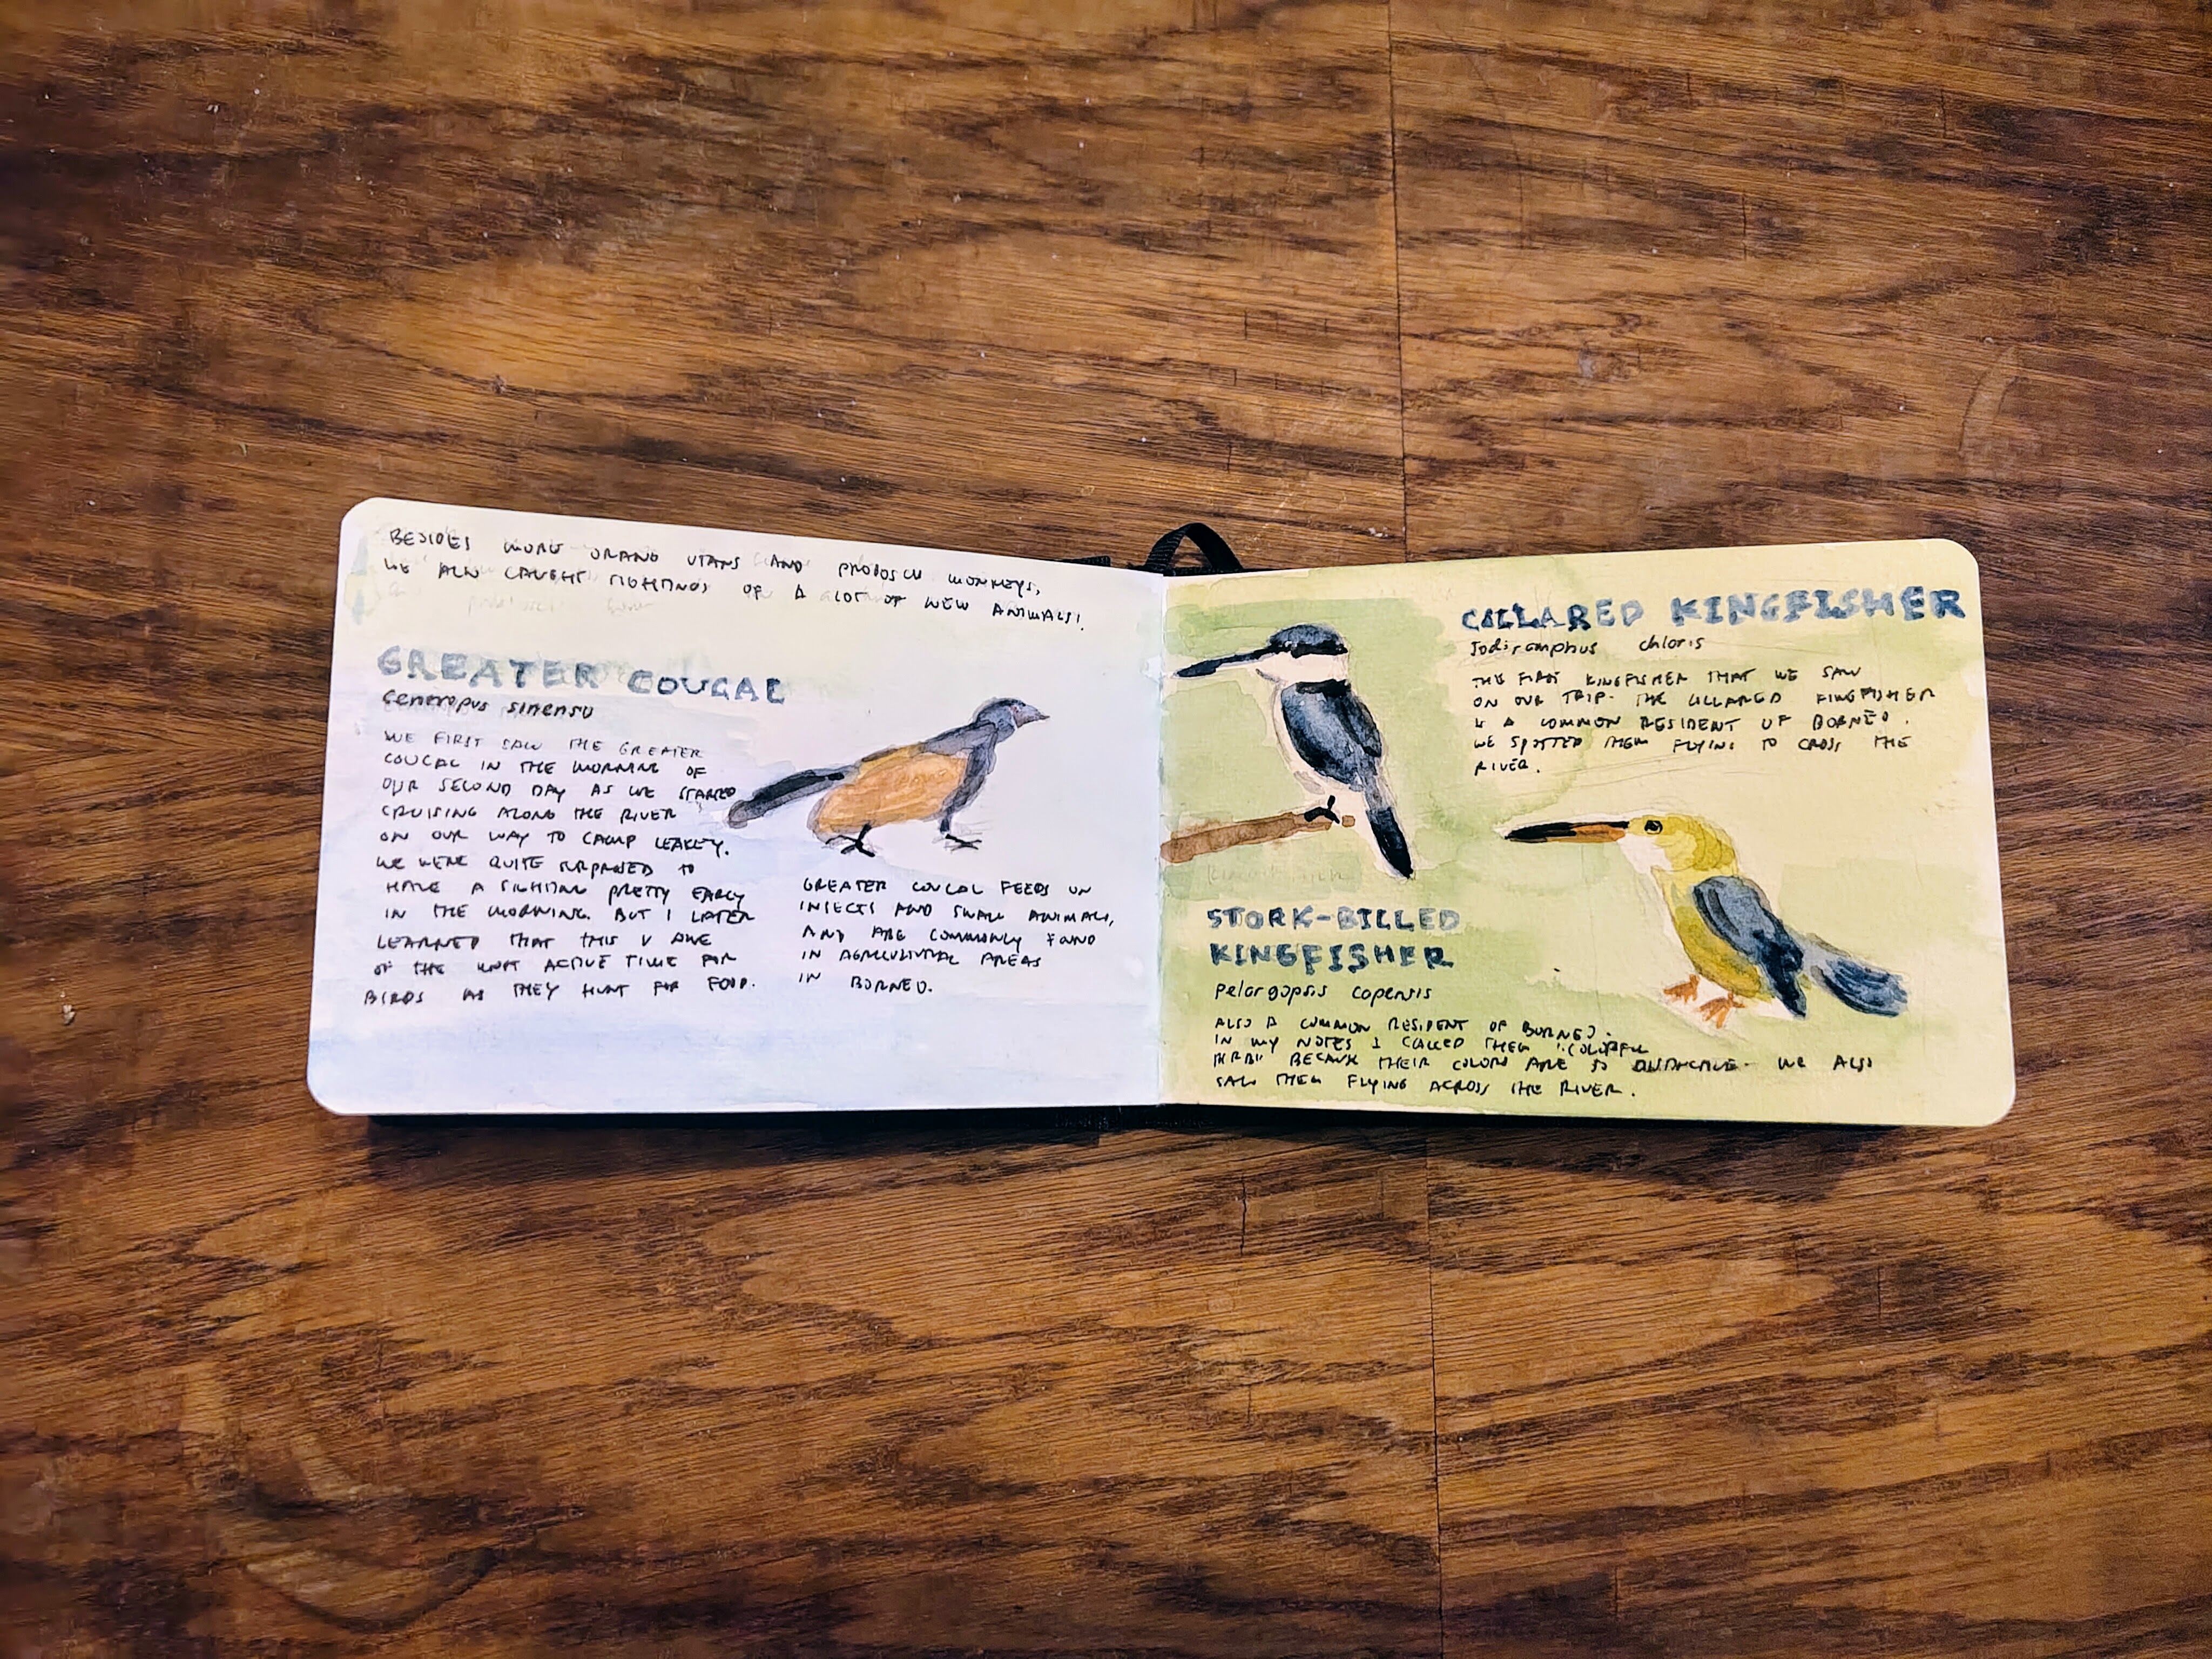 BESIDES MORE ORANG UTANS AND PROBOSCIS MONKEYS,
WE ALSO CAUGHT SIGHTINGS OF A LOT OF NEW ANIMALS!
GREATER COUCAL
Centropus sinensis
WE FIRST SAW THE GREATER
COUCAL IN THE MORNING OF
OUR SECOND DAY AS WE STARTED
CRUISING ALONG THE RIVER
ON OUR WAY TO CAMP LEAKEY.
WE WERE QUITE SURPRISED TO
HAVE A SIGHTING PRETTY EARLY
IN THE MORNING. BUT I LATER
LEARNED THAT THIS IS ONE
OF THE MOST ACTIVE TIME FOR
BIRDS AS THEY HUNT FOR FOOD.
GREATER COUCAL FEEDS ON
INSECTS AND SMALL ANIMALS,
AND ARE COMMONLY FOUND
IN AGRICULTURAL AREAS
IN BORNEO.
COLLARED KINGFISHER
Todiramphus chloris
THE FIRST KINGFISHER THAT WE SAW
ON OUR TRIP. THE COLLARED KINGFISHER
IS A COMMON RESIDENT OF BORNEO.
WE SPOTTED THEM FLYING TO CROSS THE
RIVER.
STORK-BILLED
KINGFISHER
Pelargopsis capensis
ALSO A COMMON RESIDENT OF BORNEO.
IN MY NOTES I CALLED THEM "COLORFUL
BIRD" BECAUSE THEIR COLORS ARE SO DISTINCTIVE. WE ALSO
SAW THEM FLYING ACROSS THE RIVER.